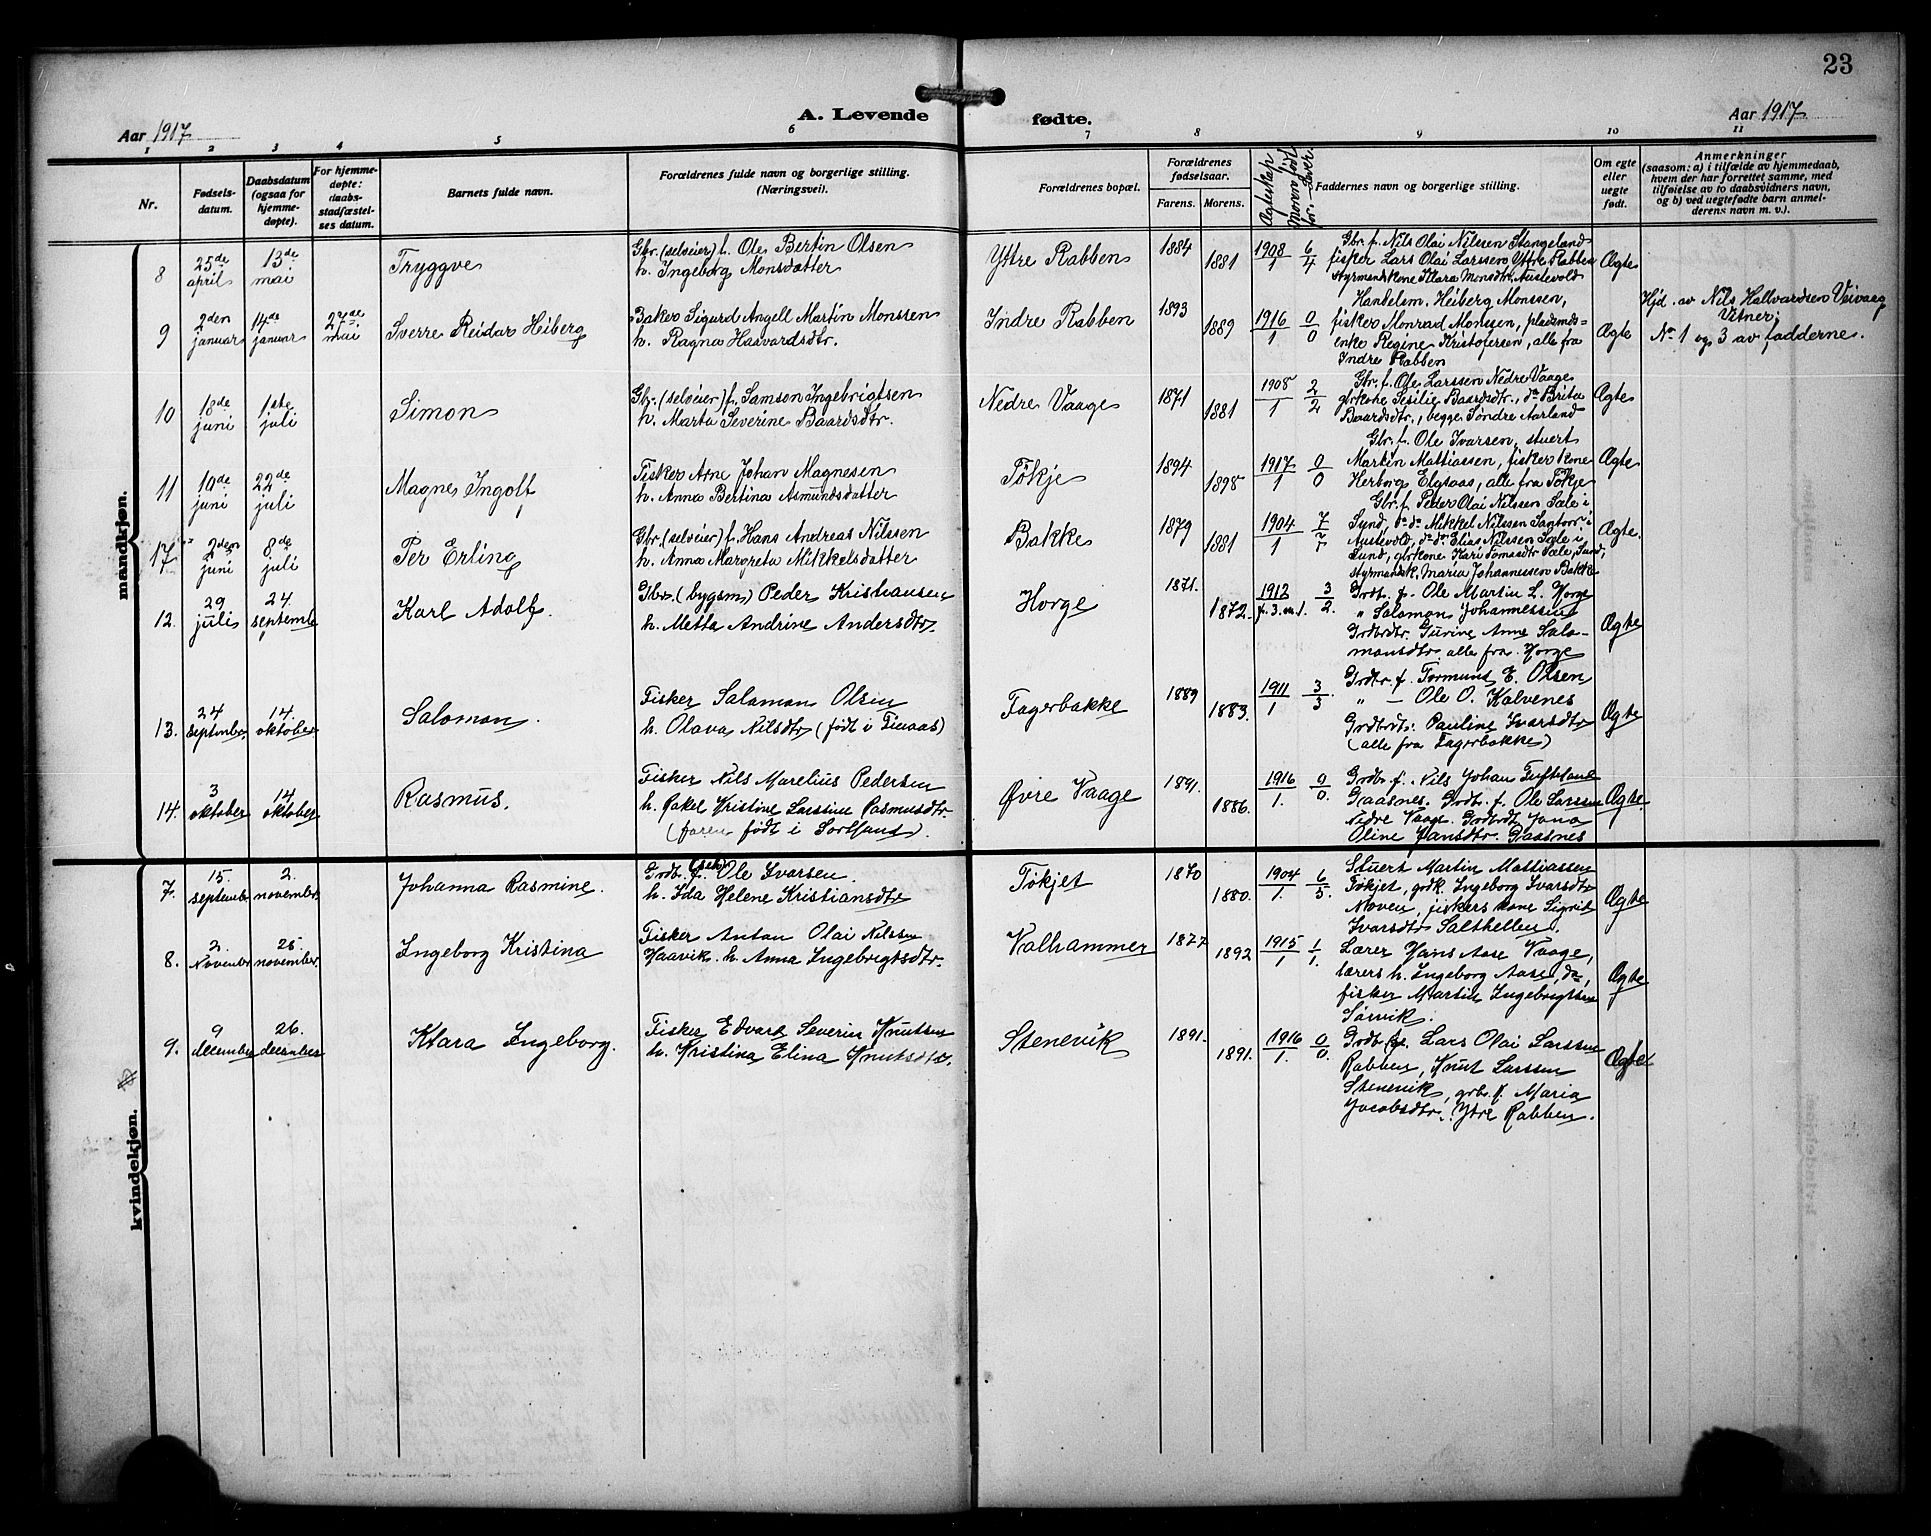 23
A. Levende fødte.
Aar 1917
Aar 1917
1 2 3 4 5 6 7 8 9 10 11
Nr.
Fødsels-
datum.
Daabsdatum
(ogsaa for
hjemme-
døpte).
For hjemme-
døpte:
daabs-
stadfæstel-
ses datum.
Barnets fulde navn.
Forældrenes fulde navn og borgerlige stilling.
(Næringsvei).
Forældrenes bopæl.
Forældrenes
fødselsaar.
Farens. Morens.
Ægteskap
Moren født
før. Lever.
Faddernes navn og borgerlige stilling.
Om egte
eller
uegte
født.
Anmerkninger
(saasom: a) i tilfælde av hjemmedaab,
hvem der har forrettet samme, med
tilføielse av to daabsvidners navn,
og b) ved uegtefødte barn anmel-
derens navn m. v.).
mandkjøn.
8
25de
april
13de
mai
Tryggve
Gbr. (selveier) f. Ole Bertin Olsen
h. Ingeborg Monsdatter
Yttre Rabben
1884
1881
1908
1
6
4
Gbr. f. Nils Olai Nilssen Stangeland
fisker Lars Olai Larssen Yttre Rabben
styrmandskone Klara Monsdtr. Austevold
Ægte
9
2den
januar
14de
januar
27de
mai
Sverre Reidar Heiberg
Baker Sigurd Angell Martin Monssen
h. Ragna Haavardsdtr.
Indre Rabben
1893
1889
1916
1
0
0
Handelsm. Heiberg Monssen,
fisker Monrad Monssen, pladsmds-
enke Regine Kristofersen, alle fra
Indre Rabben
Ægte
Hjd. av Nils Hallvardsen Veivaag
Vitner:
No 1 og 3 av fadderne.
10
18de
juni
1ste
juli
Simon
Gbr. (selveier) f. Samson Ingebrigtsen
h. Marta Severine Baardsdtr.
Nedre Vaage
1871
1881
1908
1
2
2
Gbr. f. Ole Larssen Nedre Vaage
gbrkone Sesilie Baardsdtr., do Brita
Baardsdtr., begge Søndre Aarland
Ægte
11
10de
juni
22de
juli
Magne Ingolf
Fisker Arne Johan Magnesen
h. Anna Bertina Asmundsdatter
Tøkje
1894
1898
1917
1
0
0
Gbr. f. Ole Ivarsen, stuert
Martin Mattiassen, fisker kone
Herborg Elgsaas, alle fra Tøkje
Ægte
17
2den
juni
8de
juli
Per Erling
Gbr. (selveier) f. Hans Andreas Nilssen
h. Anna Margreta Mikkelsdatter
Bakke
1879
1881
1904
1
7
7
Gbr. f. Peder Olai Nilssen Sæle i
Sund, do do Mikkel Nilssen Santorv i
Austevold, do do Elias Nilssen Sæle i
Sund, gbrkone Kari Tomasdtr Sæle, Sund,
styrmandsk. Maria Johannessen Bakke
Ægte.
12.
29
juli
24.
septemb.
Karl Adolf.
Gbr. (bygsm) Peder Kristiansen
h. Metta Andrine Andersdtr.
Horge
1871.
1872.
1912
f. 3. m. 1.
3
2.
Grdb. f. Ole Martin L. Horge
" Salomon Johannessen
Grdbrdtr. Gurine Anne Salo-
monsdtr. alle fra Horge
Ægte
13.
24
september
14.
oktober
Salomon.
Fisker Salomon Olsen
h. Olava Nilsdtr (født i Finaas)
Fagerbakke
1889
1883.
1911
1
3
3
Grdbr. f. Tormund E. Olsen
" — Ole O. Kalvenes
Grdbrdtr. Pauline Ivarsdtr
(alle fra Fagerbakke)
Ægte
14.
3
oktober
14
oktober
Rasmus.
Fisker Nils Marelius Pedersen
h. Rakel Kristine Larssine Rasmusdtr.
(faren født i Sortland).
Øvre Vaage
1891.
1886.
1916
1.
0
0.
Grdb. f. Nils Johan Tufteland
Gaasnes. Grdb. f. Ole Larssen
Nedre Vaage. Grdbrdtr Jona
Oline Jansdtr. Gaasnes
Ægte.
kvindekjøn.
7.
15.
september
2.
november.
Johanna Rasmine.
Grdb. (selv) f. Ole Ivarsen.
h. Ida Helene Kristiansdtr
Tøkjet
1870
1880.
1904
1.
6
5.
Stuert Martin Mattiassen
Tøkjet, grdk. Ingeborg Ivarsdtr
Noven, fiskers kone Sigrid
Ivarsdtr Salthellen.
Ægte
8.
2.
November
25.
november.
Ingeborg Kristina
Fisker Anton Olai Nilssen
Haavik. h. Anna Ingebrigtsdtr.
Valhammer
1877
1892
1915
1
1
1.
Lærer Hans Aase Vaage,
lærers h. Ingeborg Aase, do,
fisker Martin Ingebrigtsen
Sørvik.
Ægte
9.
9
december
26.
december
Klara Ingeborg.
Fisker Edvard Severin Knutsen
h. Kristina Elina Knutsdtr.
Stenevik
1891.
1891.
1916
1.
0
0.
Grdb. f. Lars Olai Larssen
Rabben, Knut Larssen
Stenevik, grbr. f. Maria
Jacobsdtr. Ytre Rabben.
Ægte